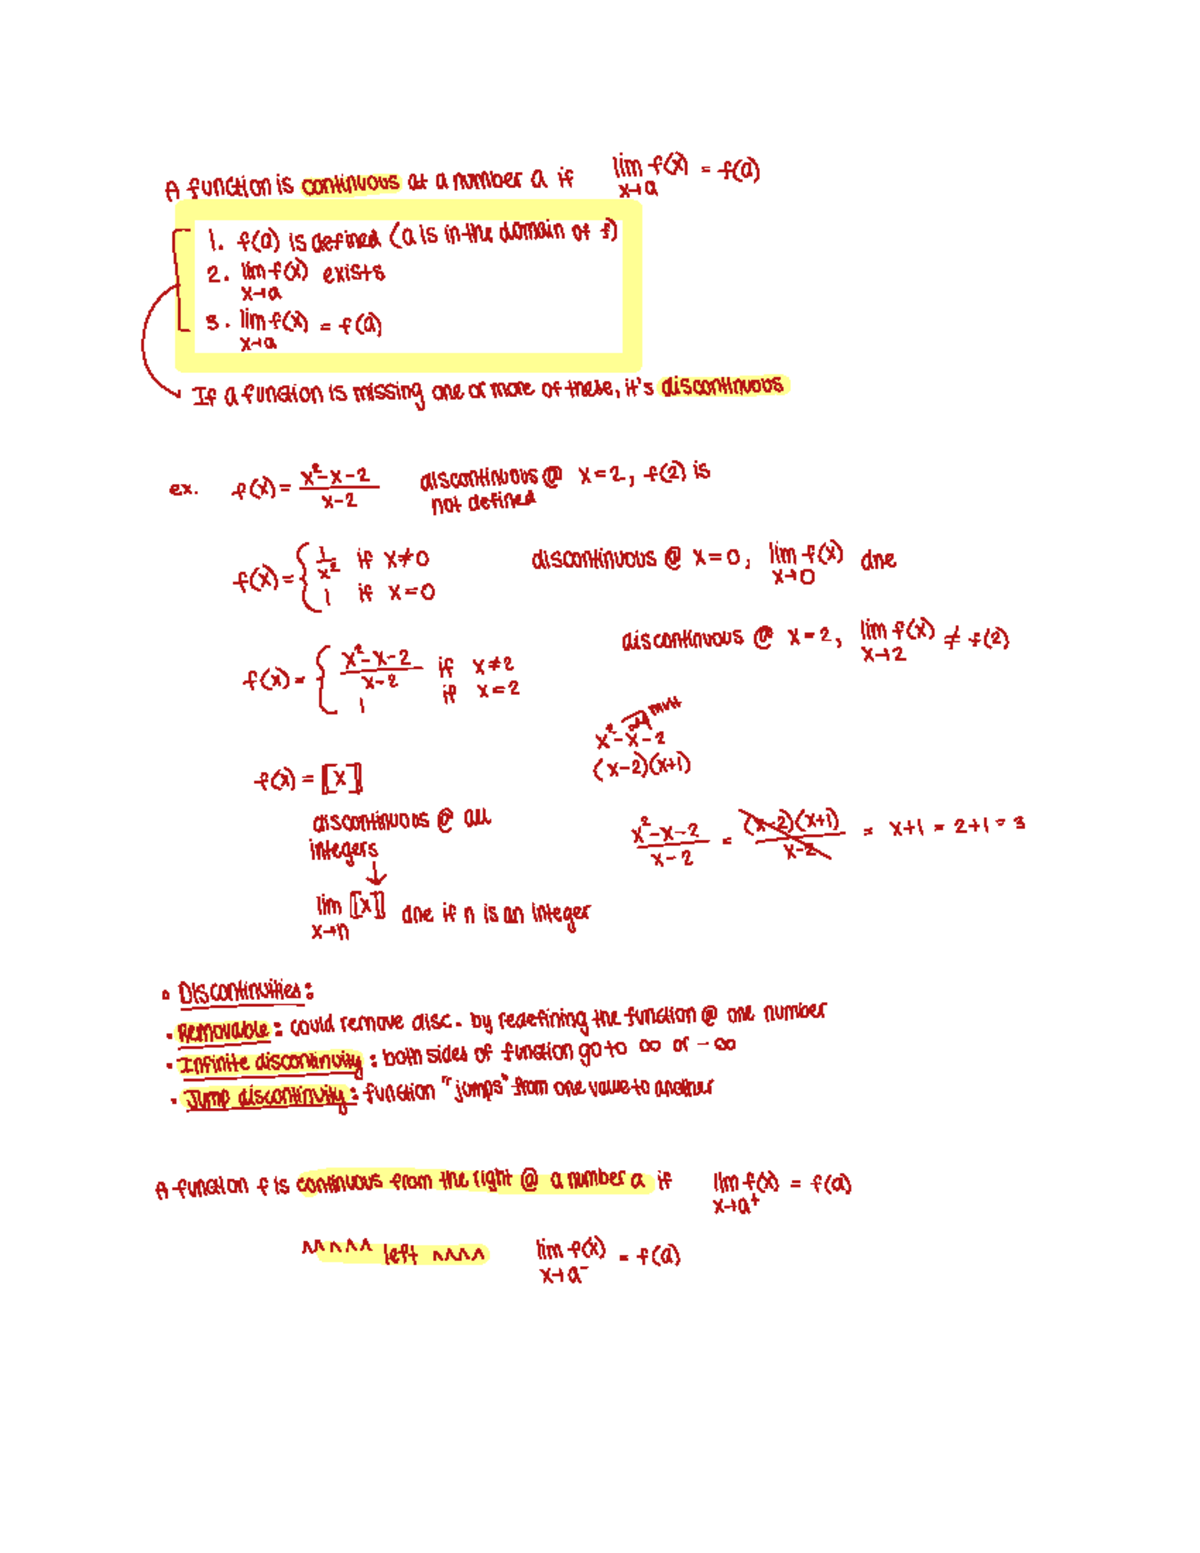 A function is continuous at a number a if lim f(x) = f(a)
x→a
1. f(a) is defined (a is in the domain of f)
2. lim f(x) exists
x→a
3. lim f(x) = f(a)
x→a
If a function is missing one or more of these, it's discontinuous
ex. f(x) = x²-x-2 / x-2 discontinuous @ x=2, f(2) is
not defined
f(x) = { 1/x² if x≠0 discontinuous @ x=0, lim f(x) dne
1 if x=0 x→0
f(x) = { x²-x-2 / x-2 if x≠2 discontinuous @ x=2, lim f(x) ≠ f(2)
1 if x=2 x→2
add mult
x²-x-2
(x-2)(x+1)
f(x) = [[x]]
discontinuous @ all
integers
↓
lim [[x]] dne if n is an integer
x→n
x²-x-2 / x-2 = (x-2)(x+1) / x-2 = x+1 = 2+1 = 3
• Discontinuities:
• Removable: could remove disc. by redefining the function @ one number
• Infinite discontinuity: both sides of function go to ∞ or -∞
• Jump discontinuity: function "jumps" from one value to another
A function f is continuous from the right @ a number a if lim f(x) = f(a)
x→a⁺
^^^^^ left ^^^^ lim f(x) = f(a)
x→a⁻